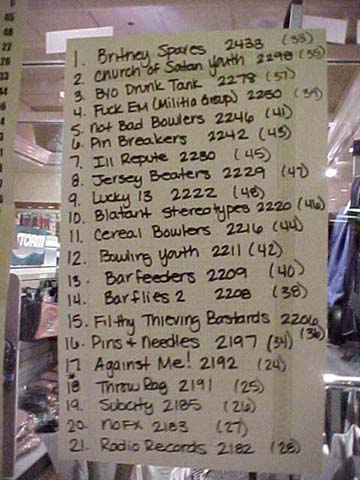 1. Britney Spares 2433 (33)
2. Church of Satan Youth 2298 (35)
3. BYO Drunk Tank 2278 (37)
4. Fuck Em (Militia Group) 2250 (39)
5. Not Bad Bowlers 2246 (41)
6. Pin Breakers 2242 (43)
7. Ill Repute 2230 (45)
8. Jersey Beaters 2229 (47)
9. Lucky 13 2222 (48)
10. Blatant Stereotypes 2220 (46)
11. Cereal Bowlers 2216 (44)
12. Bowling Youth 2211 (42)
13. Barfeeders 2209 (40)
14. Barflies 2 2208 (38)
15. Filthy Thieving Bastards 2206 (36)
16. Pins + Needles 2197 (34)
17. Against Me! 2192 (24)
18 Throw Rag 2191 (25)
19. Subcity 2185 (26)
20. NOFX 2183 (27)
21. Radio Records 2182 (28)
STORM